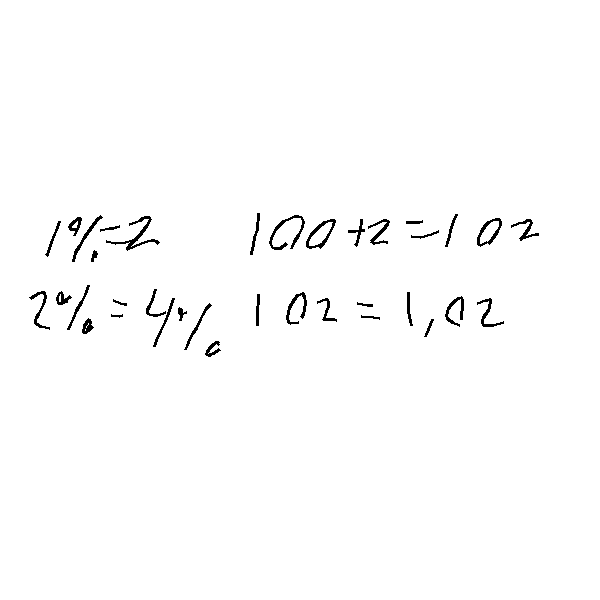 1%=2 100+2=102
2%=4% 102=1,02